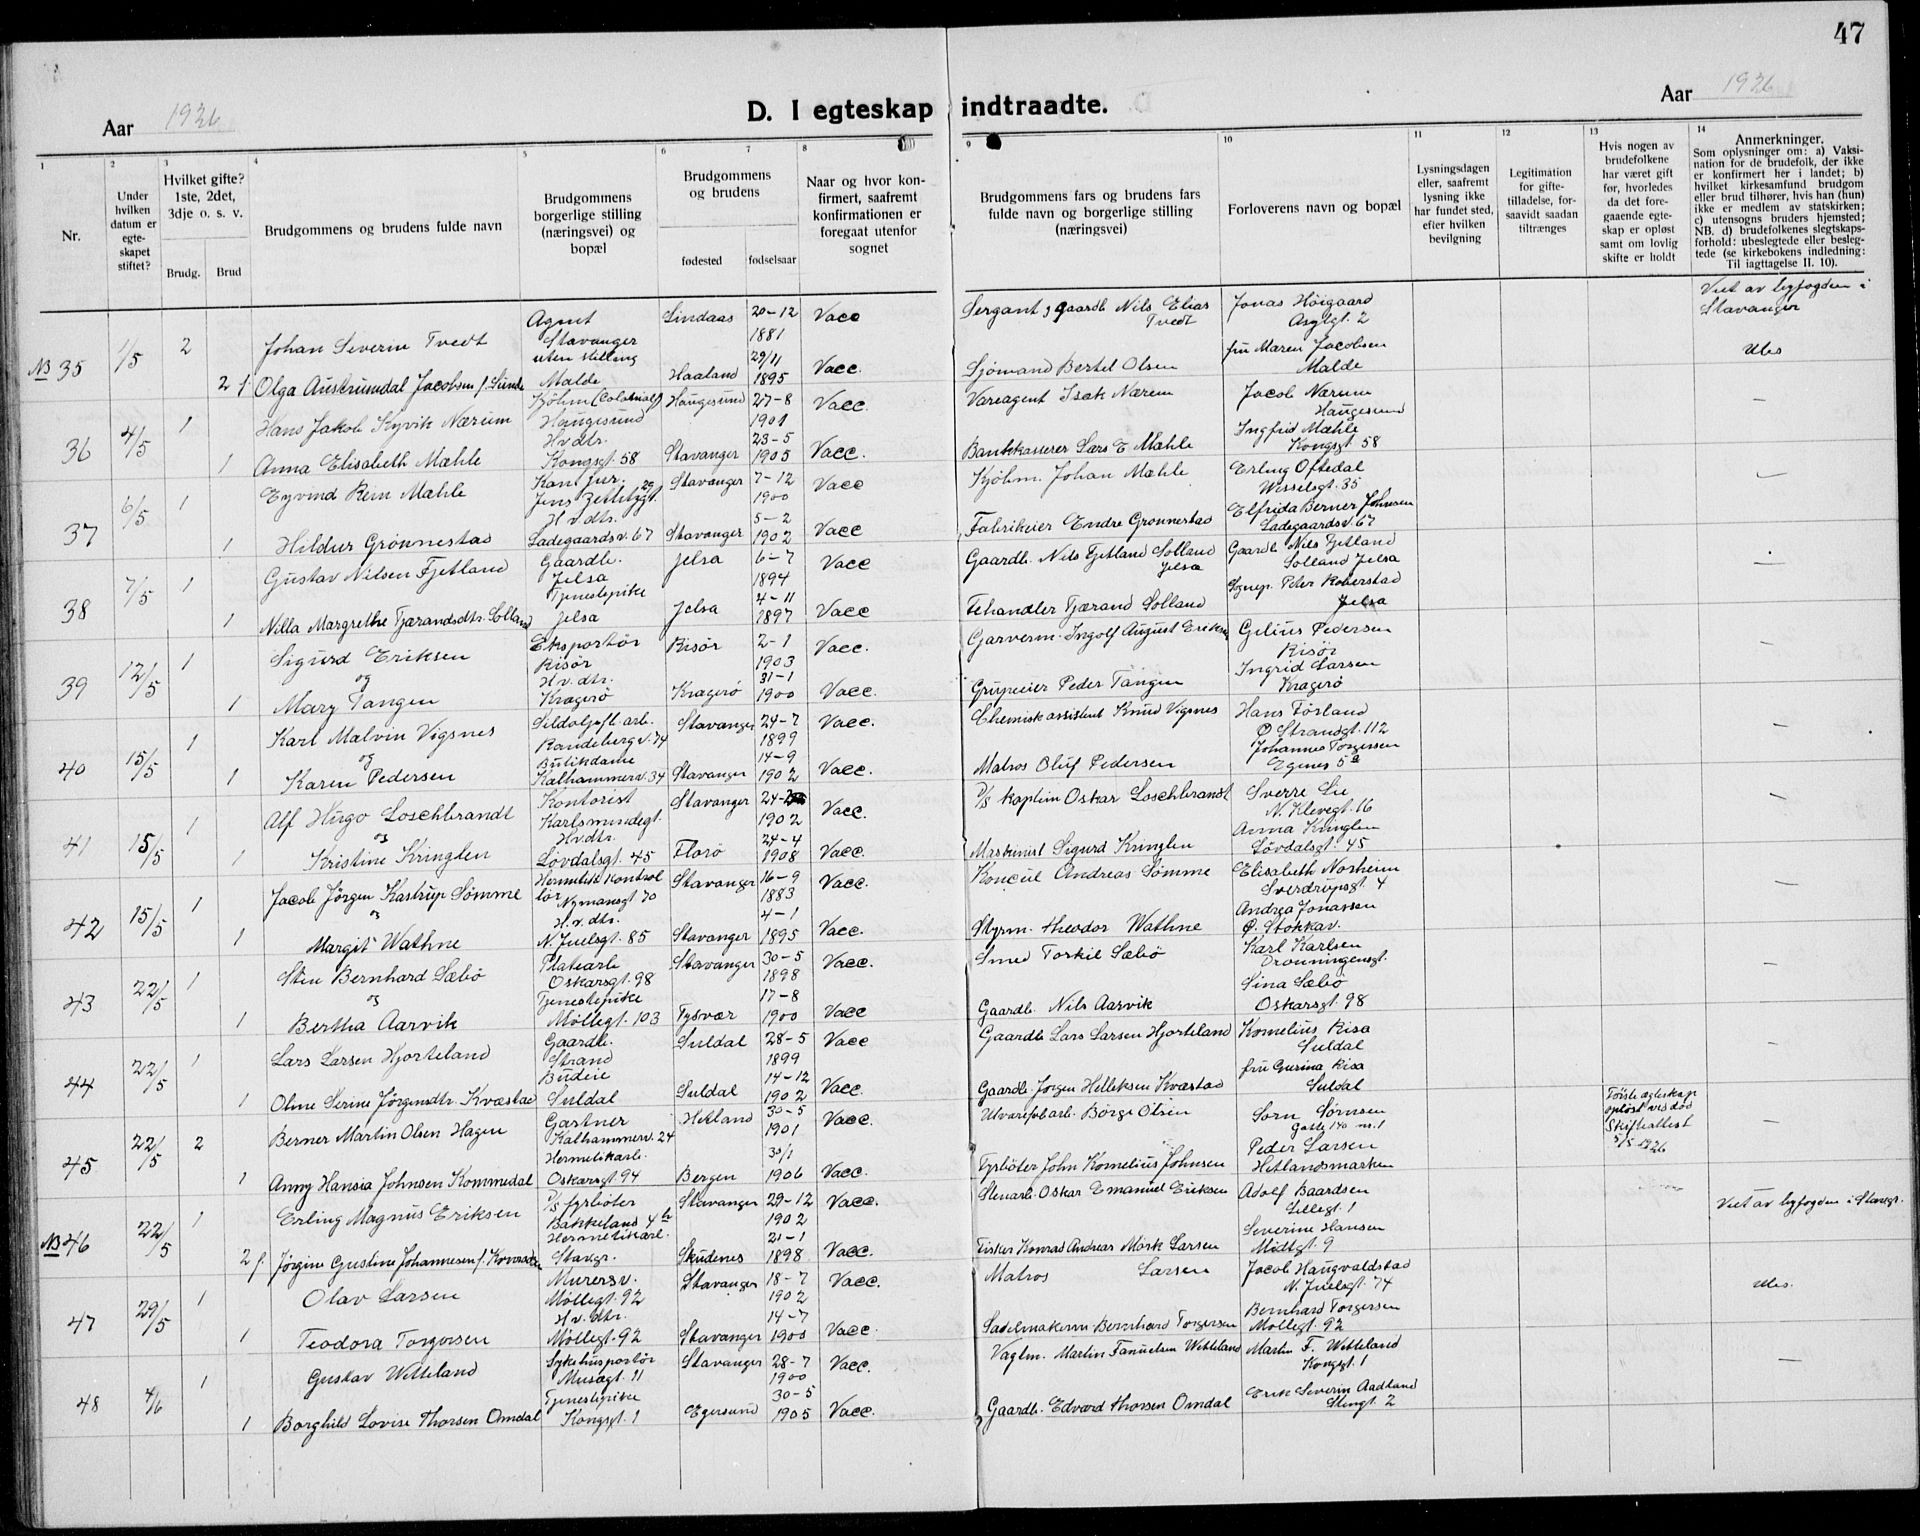 47
Aar 1926
D. I egteskap indtraadte.
Aar 1926
1 2 3 4 5 6 7 8 9 10 11 12 13 14
Nr.
Under hvilken datum er egteskapet stiftet?
Hvilket gifte? 1ste, 2det, 3dje o. s. v.
Brudg. Brud
Brudgommens og brudens fulde navn
Brudgommens borgerlige stilling (næringsvei) og bopæl
Brudgommens og brudens
fødested fødselsaar
Naar og hvor konfirmert, saafremt konfirmationen er foregaat utenfor sognet
Brudgommens fars og brudens fars fulde navn og borgerlige stilling (næringsvei)
Forloverens navn og bopæl
Lysningsdagen eller, saafremt lysning ikke har fundet sted, efter hvilken bevilgning
Legitimation for giftetilladelse, forsaavidt saadan tiltrænges
Hvis nogen av brudefolkene har været gift før, hvorledes da det foregaaende egteskap er opløst samt om lovlig skifte er holdt
Anmerkninger.
Som oplysninger om: a) Vaksination for de brudefolk, der ikke er konfirmert her i landet; b) hvilket kirkesamfund brudgom eller brud tilhører, hvis han (hun) ikke er medlem av statskirken; c) utensogns bruders hjemsted; NB. d) brudefolkenes slegtskapsforhold: ubeslegtede eller beslegtede (se kirkebokens indledning: Til iagttagelse II. 10).
NB 35 1/5 2 Johan Severin Tvedt Agent Stavanger Lindaas 20-12 1881 Vacc Sergant & gaardb Nils Elias Tvedt Jonas Höigaard Asylgt. 2 Viet av byfogden i Stavanger
2 f. Olga Austrumdal Jacobsen f. Lunde uten stilling Malde Haaland 29/11 1895 Vacc. Sjömand Bertel Olsen fru Maren Jacobsen Malde Ubs
36 4/5 1 Hans Jakob Kyvik Nærum Kjöbm (Colonial) Haugesund Haugesund 27-8 1901 Vacc. Vareagent Isak Nærem Jacob Nærum Haugesund —
1 Anna Elisabeth Mæhle Hv.dtr. Kongsgt. 58 Stavanger 23-5 1905 Vacc. Bankkasserer Lars E Mæhle Ingfrid Mæhle Kongsgt 58
37 6/5 1 Eyvind Rein Mæhle Kan. jur. Jens Zetlitzgt. 29 Stavanger 7-12 1900 Vacc Kjöbm. Johan Mæhle Erling Oftedal Wesselsgt. 35 —
1 Hildur Grönnestad H.v.dtr. Ladegaardsv. 67 Stavanger 5-2 1902 Vacc Fabrikeier Endre Gronnestad Elfrida Berner Johnsen Ladegaardsv. 67
38 7/5 1 Gustav Nilsen Fjetland Gaardb. Jelsa Jelsa 6-7 1894 Vacc Gaardb. Nils Fjetland Solland Jelsa Gaardb Nils Fjetland Solland Jelsa —
1 Nilla Margrethe Tjærandsdtr. Solland Tjenestepike Jelsa Jelsa 4-11 1897 Vacc Fehandler Tjærand Solland Sognep. Peter Koberstad Jelsa
39 12/5 1 Sigurd Eriksen Eksportör Risör Risör 2-1 1903 Vacc. Garverm. Ingolf August Eriksen Gelius Pedersen Risör —
og
1 Mary Tangen H.v.dtr. Kragerö Kragerö 31-1 1900 Vacc. Grubeeier Peder Tangen Ingrid Larsen Kragerö
40 15/5 1 Karl Malvin Vigsnes Sildoljefb. arb. Randeberg v. 74 Stavanger 24-7 1899 Vacc. Chemisk assistent Knud Vigsnes Hans Förland Ø Strandgt. 112 —
og
1 Karen Pedersen Butikdame Kalhammerv. 34 Stavanger 14-9 1902 Vacc. Matros Oluf Pedersen Johannes Torgersen Egenes 5a
41 15/5 1 Alf Hugo Loschbrandt Kontorist Karlsmindegt. Stavanger 24- 1902 Vacc. P/s kaptein Oskar Loschbrandt Sverre Lie N. Klevegt. 16 —
og
1 Kristine Kringlen H.v.dtr. Lövdalsgt. 45 Florö 24-4 1908 Vacc. Maskinist Sigurd Kringlen Anna Kringlen Lövdalsgt. 45
42 15/5 1 Jacob Jörgen Kastrup Sömme Hermetikkontrollör Nymansgt 70 Stavanger 16-9 1883 Vacc. Koncul Andreas Sömme Elisabeth Norheim Sverdrupsgt 4 —
og
1 Margit Wathne H.v.dtr. N. Juelsgt. 85 Stavanger 4-1 1895 Vacc. Styrm. Theodor Wathne Andrea Jonassen Ø. Stokkav.
43 22/5 1 Sten Bernhard Sæbö Platearb Oskarsgt. 98 Stavanger 30-5 1898 Vacc. Smed Torkil Sæbö Karl Karlsen Dronningensgt. —
og
1 Bertha Aarvik Tjenestepike Möllegt. 103 Tysvær 17-8 1900 Vacc Gaardb. Nils Aarvik Sina Sæbö Oskarsgt 98
44 22/5 1 Lars Larsen Hjorteland Gaardb. Strand Suldal 28-5 1899 Vacc Gaardb Lars Larsen Hjorteland Kornelius Risa Suldal —
1 Oline Serine Jörgensdtr. Kvæstad Budeie Suldal Suldal 14-12 1902 Vacc. Gaardb. Jörgen Helleksen Kvæstad fru Gurina Risa Suldal
45 22/5 2 Berner Martin Olsen Hagen Gartner Kalhammerv. 24 Hetland 30-5 1901 Vacc. Börge Olsen Sörn Sörnsen Gade 140 nr. 1 Förste ægteskap oplöst ved död Skifteattest 5/5 1926 —
1 Anny Hansia Johnsen Kommedal Hermetikarb. Oskarsgt 94 Bergen 30/1 1906 Vacc. Fyrböter John Kornelius Johnsen Peder Larsen Hetlandsmarken
NB 46 22/5 1 Erling Magnus Eriksen P/s fyrböter Bakkeland 4b Stavanger 29-12 1902 Vacc. Stenarb. Oskar Emanuel Eriksen Adolf Baardsen Lillegt. 1 Viet av byfogden i Stavgr.
2 f. Jörgine Gustine Johannesen f. Hermetikarb. Stavgr. Skudenes 21-1 1898 Vacc. Fisker Konrad Andreas Mörk Larsen Severine Hansen Midtgt. 9
47 29/5 1 Olav Larsen Murersv. Möllegt. 92 Stavanger 18-7 1902 Vacc. Matros Larsen Jacob Haugvaldstad N. Juelsgt. 74 Ubs.
1 Teodora Torgersen H.v.dtr. Möllegt. 92 Stavanger 14-7 1900 Vacc. Sadelmakerm Bernhard Torgersen Bernhard Torgersen Möllegt. 92
48 4/6 1 Gustav Wetteland Sykehusportör Musægt. 11 Stavanger 28-7 1900 Vacc. Vaglm. Martin Fanuelsen Wetteland Martin F. Wetteland Kongsgt. 1 —
1 Borghild Lovise Thorsen Omdal Tjenestepike Kongsgt. 1 Egersund 30-5 1905 Vacc. Gaardb. Edvard Thorsen Omdal Erik Severin Aadland Stengt. 2